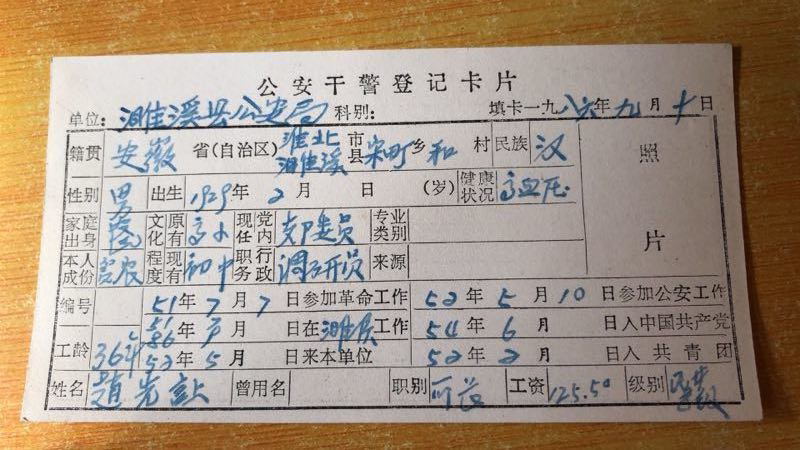 公安干警登记卡片
单位: 濉溪县公安局 科别: 填卡一九八六年九月十日
籍贯 安徽 省(自治区) 淮北 市 濉溪 县 宋町 乡 和 村 民族 汉 照
性别 男 出生 1929年2月 日 (岁) 健康状况 高血压
家庭出身 文化程度 原有 高小 现任职务 党内 支P委员 专业类别 片
本人成份 富农 现有 初中 行政 调研员 来源
编号 51年7月7日参加革命工作 52年5月10日参加公安工作
工龄 36年 年 月 日在 工作 54年6月 日入中国共产党
52年5月 日来本单位 52年2月 日入共青团
姓名 赵光 曾用名 职别 所长 工资 125.50 级别